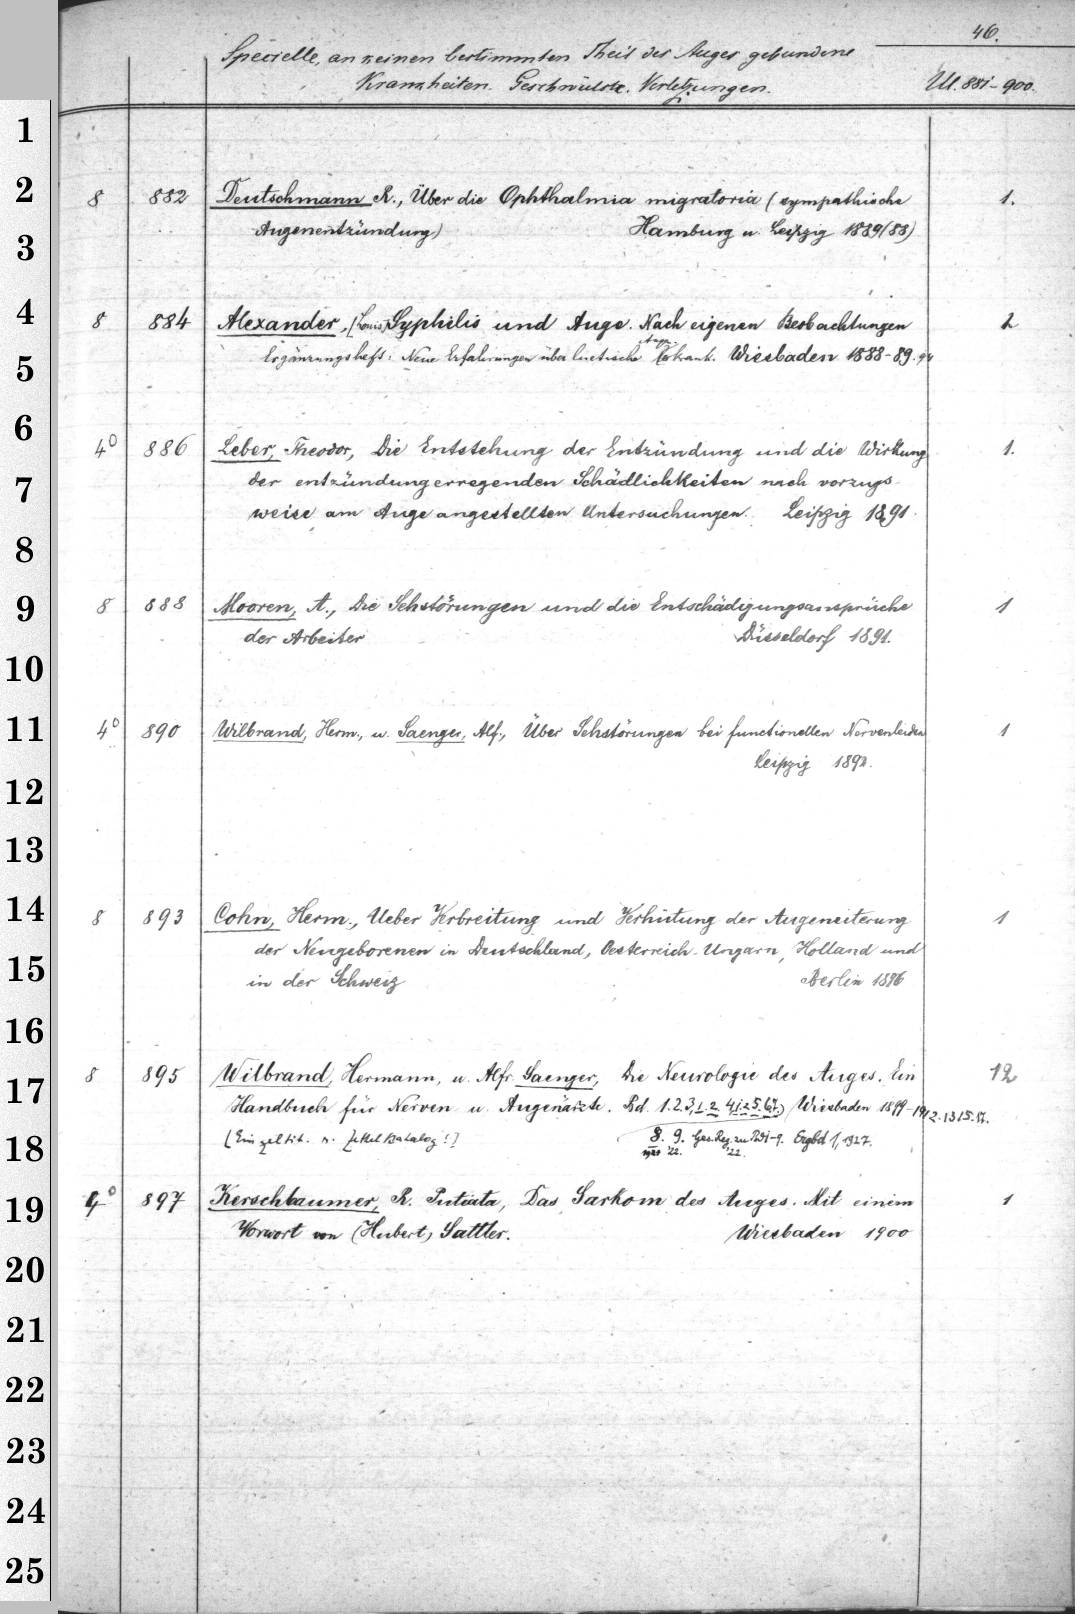 46.
Specielle, an keinen bestimmten Theil des Auges gebundene
Krankheiten. Geschwülste. Verletzungen. Ul. 881-900.
1
2 8 882 Deutschmann R., Über die Ophthalmia migratoria (sympathische 1.
3 Augenentzündung) Hamburg u. Leipzig 1889(88)
4 8 884 Alexander, (Louis) Syphilis und Auge. Nach eigenen Beobachtungen 2
5 Ergänzungsheft: Neue Erfahrungen über luetische Augen Erkrank. Wiesbaden 1888-89.94
6 4° 886 Leber, Theodor, Die Entstehung der Entzündung und die Wirkung 1.
7 der entzündungerregenden Schädlichkeiten nach vorzugs-
weise am Auge angestellten Untersuchungen. Leipzig 1891.
8
9 8 888 Mooren, A., Die Sehstörungen und die Entschädigungsansprüche 1
der Arbeiter Düsseldorf 1891.
10
11 4° 890 Wilbrand, Herm., u. Saenger, Alf., Über Sehstörungen bei functionellen Nervenleiden 1
Leipzig 1892.
12
13
14 8 893 Cohn, Herm., Ueber Verbreitung und Verhütung der Augeneiterung 1
15 der Neugeborenen in Deutschland, Oesterreich-Ungarn, Holland und
in der Schweiz Berlin 1896
16
17 8 895 Wilbrand, Hermann, u. Alfr. Saenger, Die Neurologie des Auges. Ein 12
Handbuch für Nerven- u. Augenärzte. Bd. 1.2.3,1.2. 4,1.2.5.6.7. Wiesbaden 1899-1912.13.15.17.
18 [Einzeltit. s. Zettel Katalog!] 8. 9. Ges. Reg. zu Bd 1-9. Ergbd 1, 1927.
'22. '22.
19 4° 897 Kerschbaumer, R. Putiata, Das Sarkom des Auges. Mit einem 1
Vorwort von (Hubert) Sattler. Wiesbaden 1900
20
21
22
23
24
25